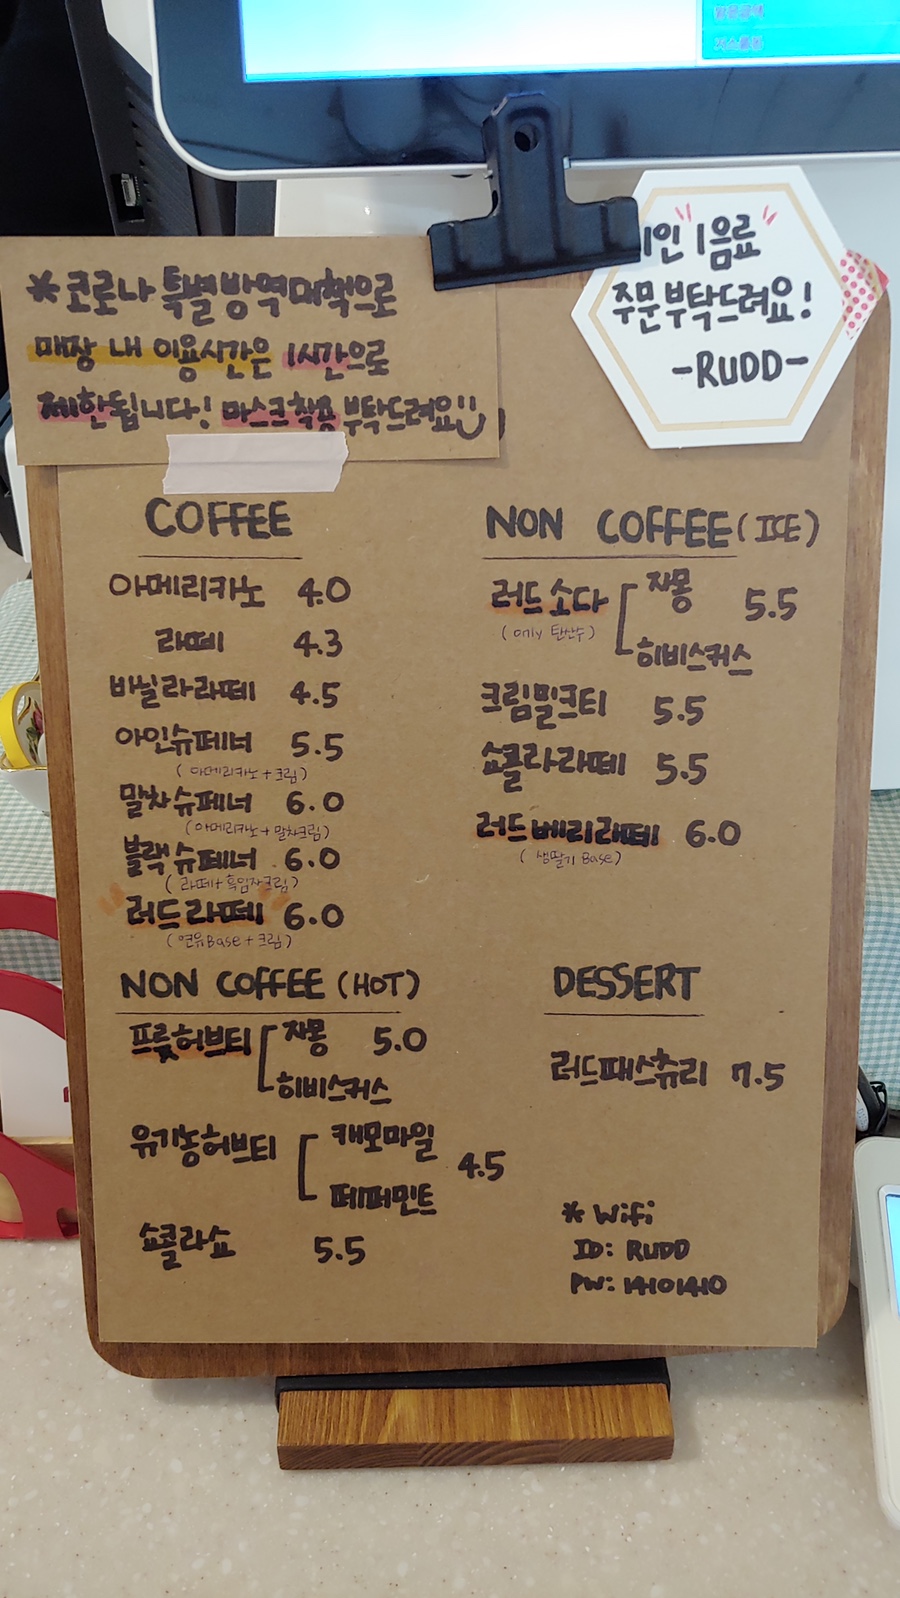 *코로나 특별방역대책으로
매장 내 이용시간은 1시간으로
제한됩니다! 마스크착용 부탁드려요!!
1인 1음료
주문 부탁드려요!
-RUDD-
COFFEE
아메리카노 4.0
라떼 4.3
바닐라라떼 4.5
아인슈페너 5.5
(아메리카노+크림)
말차슈페너 6.0
(아메리카노+말차크림)
블랙슈페너 6.0
(라떼+흑임자크림)
러드라떼 6.0
(연유Base+크림)
NON COFFEE (ICE)
러드소다 자몽 5.5
(only 탄산수)
히비스커스
크림밀크티 5.5
쇼콜라라떼 5.5
러드베리라떼 6.0
(생딸기 Base)
NON COFFEE (HOT)
프룻허브티 자몽 5.0
히비스커스
유기농허브티 캐모마일 4.5
페퍼민트
쇼콜라쇼 5.5
DESSERT
러드패스츄리 7.5
* Wifi
ID: RUDD
PW: 14101410